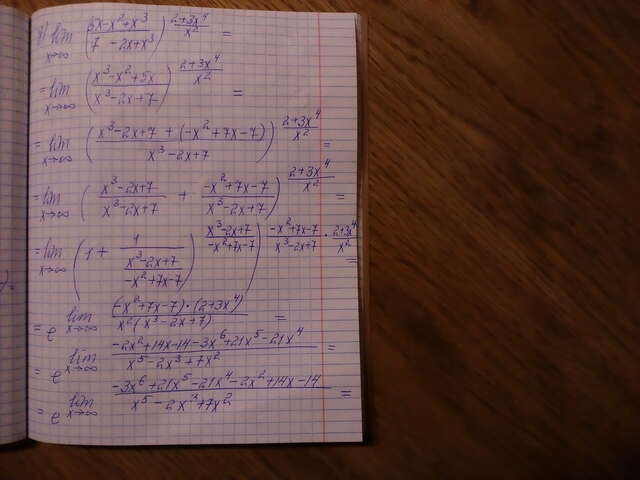 lim x→∞ ((5x-x²+x³)/(7-2x+x³))^((2+3x⁴)/x²) =
= lim x→∞ ((x³-x²+5x)/(x³-2x+7))^((2+3x⁴)/x²) =
= lim x→∞ ((x³-2x+7+(-x²+7x-7))/(x³-2x+7))^((2+3x⁴)/x²) =
= lim x→∞ ((x³-2x+7)/(x³-2x+7) + (-x²+7x-7)/(x³-2x+7))^((2+3x⁴)/x²) =
= lim x→∞ ((1+1/((x³-2x+7)/(-x²+7x-7)))^((x³-2x+7)/(-x²+7x-7)))^((-x²+7x-7)/(x³-2x+7)·(2+3x⁴)/x²) =
= e^(lim x→∞ ((-x²+7x-7)·(2+3x⁴))/(x²(x³-2x+7))) =
= e^(lim x→∞ (-2x²+14x-14-3x⁶+21x⁵-21x⁴)/(x⁵-2x³+7x²)) =
= e^(lim x→∞ (-3x⁶+21x⁵-21x⁴-2x²+14x-14)/(x⁵-2x³+7x²)) =